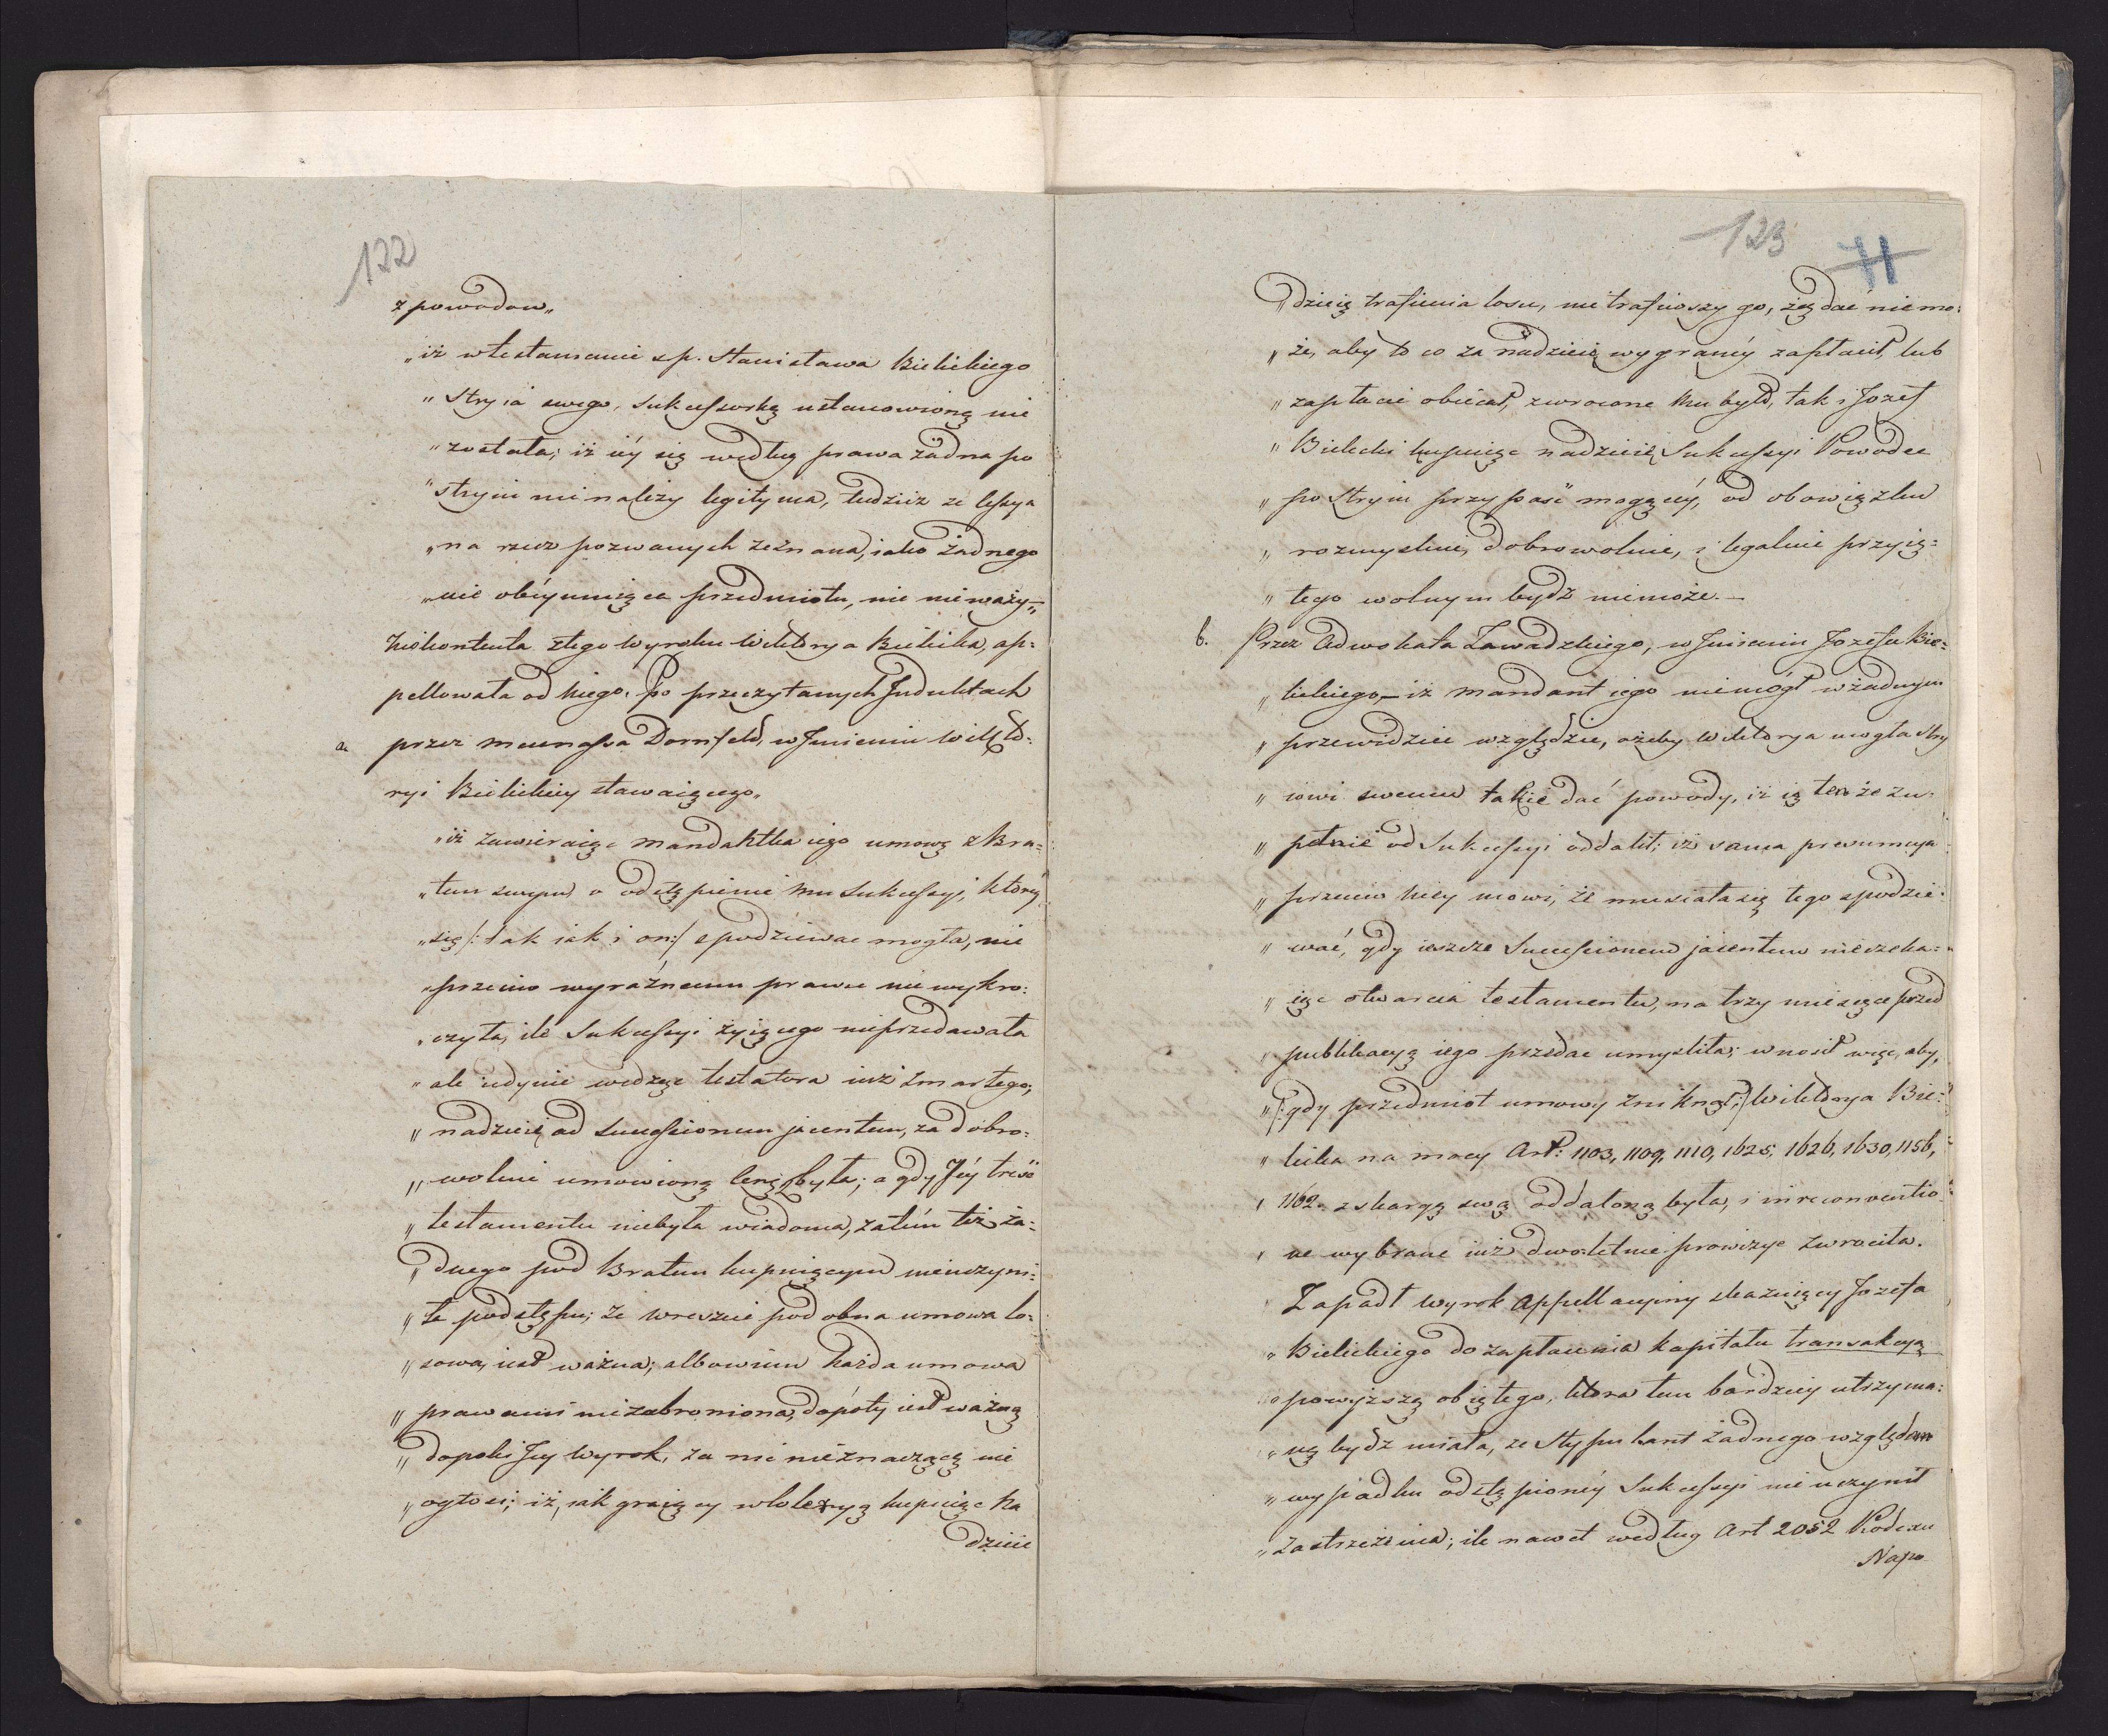 122
z powodow„
„iż w testamencie s p. Stanisława Bielickiego
„Stryia swego, Sukcessorką ustanowioną nie
„została; iż iéy się według prawa żadna po
„stryiu nienależy legityma, tudzież że cessya
„na rzecz pozwanych zeznana, iako żadnego
„nie obéymuiąca przedmiotu, nic nie waży„
Niekontenta z tego Wyroku Wiktorya Bielicka, ap=
pellowała od niego. Po przeczytanych Induktach
a. przez Mecenassa Dornfeld, w Jmieniu Wikto=
ryi Bielickiey stawaiącego„
„iż zawieraiąc Mandaktka iego umowę z Bra=
„tem swym o odstąpienie mu Sukcessyi, którey
„się /: tak iak i on :/ spodziewac mogła, nie
„przeciw wyraźnemu prawu nie wykro:
„czyła, ile Sukcessyi żyiącego nieprzedawała
„ale iedynie wiedząc testatora iuż zmarłego,
„nadzieię ad Successionem jacentem, za dobro=
„wolnie umowioną cenę zbyła; a gdy Jéy treść
„testamentu niebyła wiadoma, zatém téż ża=
„dnego pod Bratem kupuiącym nieuczyni=
„ła podstępu; że wreszcie podobna umowa lo=
„sowa, iest ważna; albowiem każda umowa
„prawami niezabroniona, dopóty iest ważną
„dopoki Jey Wyrok, za nic nieznaczącą nie
„ogłosi; iż, iak graiący w loteryą kupuiąc na
dzieie
123 71
„dzieię trafienia losu, nie trafiwszy go, żądać niemo=
„że, aby to co za nadzieię wygranéy zapłacił, lub
„zapłacić obiecał, zwrocone Mu było, tak i Jozef
„Bielicki kupuiąc nadzieię Sukcessyi Powodce
„po Stryiu przypaść mogącéy, od obowiązku
„rozmyslnie, dobrowolnie, i legalnie przyię=
„tego wolnym bydź niemoże.—
b. Przez Adwokata Zawadzkiego, w Jmieniu Jozefa Bie=
„lickiego — iż Mandant iego niemógł w żadnym
„przewidzieć względzie, ażeby Wiktorya mogła Stry
„iowi swemu takie dać powody, iż ią tenże zu=
„pełnie od Sukcessyi oddalił; iż sama presumcya
„przeciw Niey mowi, że musiała się tego spodzie=
„wać, gdy ieszcze Successionem jacentem nieczeka=
„iąc otwarcia testamentu, na trzy miesiące przed
„publikacyą iego przedać umyśliła; wnosił więc, aby,
„/: gdy przedmiot umowy zniknął; :/ Wiktorya Bie=
„licka na mocy Art: 1103, 1109, 1110, 1625, 1626, 1630, 1156,
„1162. z skargą swą oddaloną była, i in reconventio
„ne wybrane iuż dwoletnie prowizye zwrociła.
Zapadł Wyrok Appellacyiny skazuiący Jozefa
„Bielickiego do zapłacenia kapitału transakcyą
„powyższą obiętego, ktora tem bardziey utrzyma=
„ną bydź miała, że Stypulant żadnego względem
„wypadku odstąpionéy Sukcessyi nie uczynił
„zastrzeżenia; ile nawet według Art 2052 Kodexu
Napo